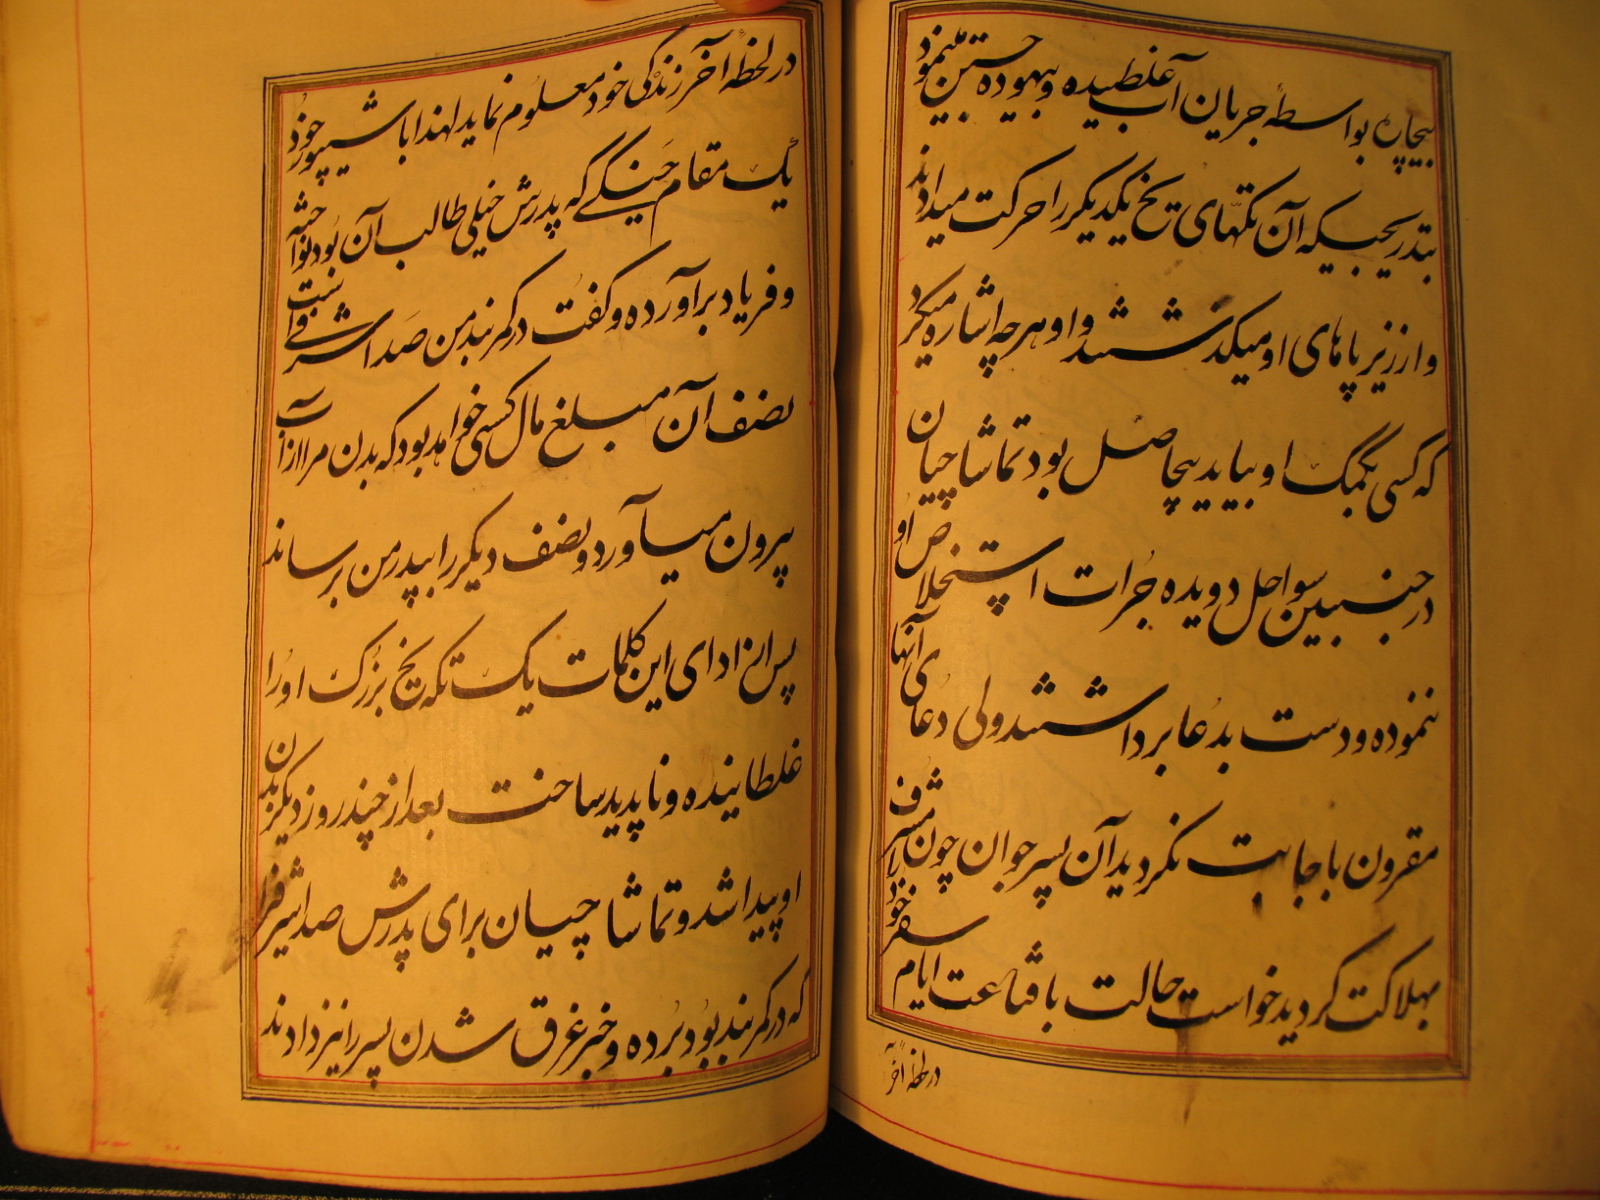 بیچاره بواسطهٔ جریان آب غلطیده و بیهوده جستن مینمود
بتدریجیکه آن تکهای یخ یکدیگر را حرکت میدادند
و از زیر پاهای او میگذشتند و او هرچه اشاره میکرد
که کسی بکمک او بیاید بیحاصل بود تماشاچیان
در جنبین سواحل دویده جرات استخلاص او
ننموده و دست بدعا برداشتند ولی دعای آنها
مقرون باجابت نکردید آن پسر جوان چون مشرف
بهلاکت کردید خواست حالت با قناعت ایام سفر خود را
در لحظهٔ آخر
در لحظهٔ آخر زندگی خود معلوم نماید لهذا با شیپور خود
یک مقام جنگی که پدرش خیلی طالب آن بود نواخته
و فریاد برآورده و کفت در کمربند من صد اشرفی است
نصف آن مبلغ مال کسی خواهد بود که بدن مرا از آب
بیرون میآورد و نصف دیگر را بپدر من برساند
پس از ادای این کلمات یک تکه یخ بزرک او را
غلطانیده و ناپدید ساخت بعد از چند روز دیگر بدن
او پیدا شد و تماشاچیان برای پدرش صد اشرفی را
که در کمربند بود برده و خبر غرق شدن پسر را نیز دادند